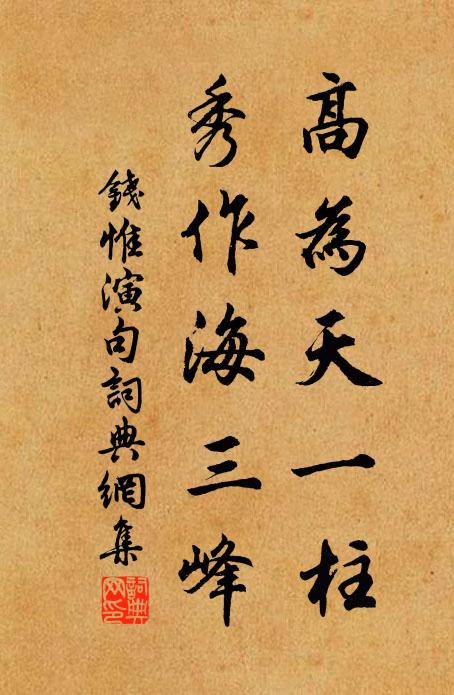 高為天一柱
秀作海三峰
錢惟演句詞典網集
詞典網印